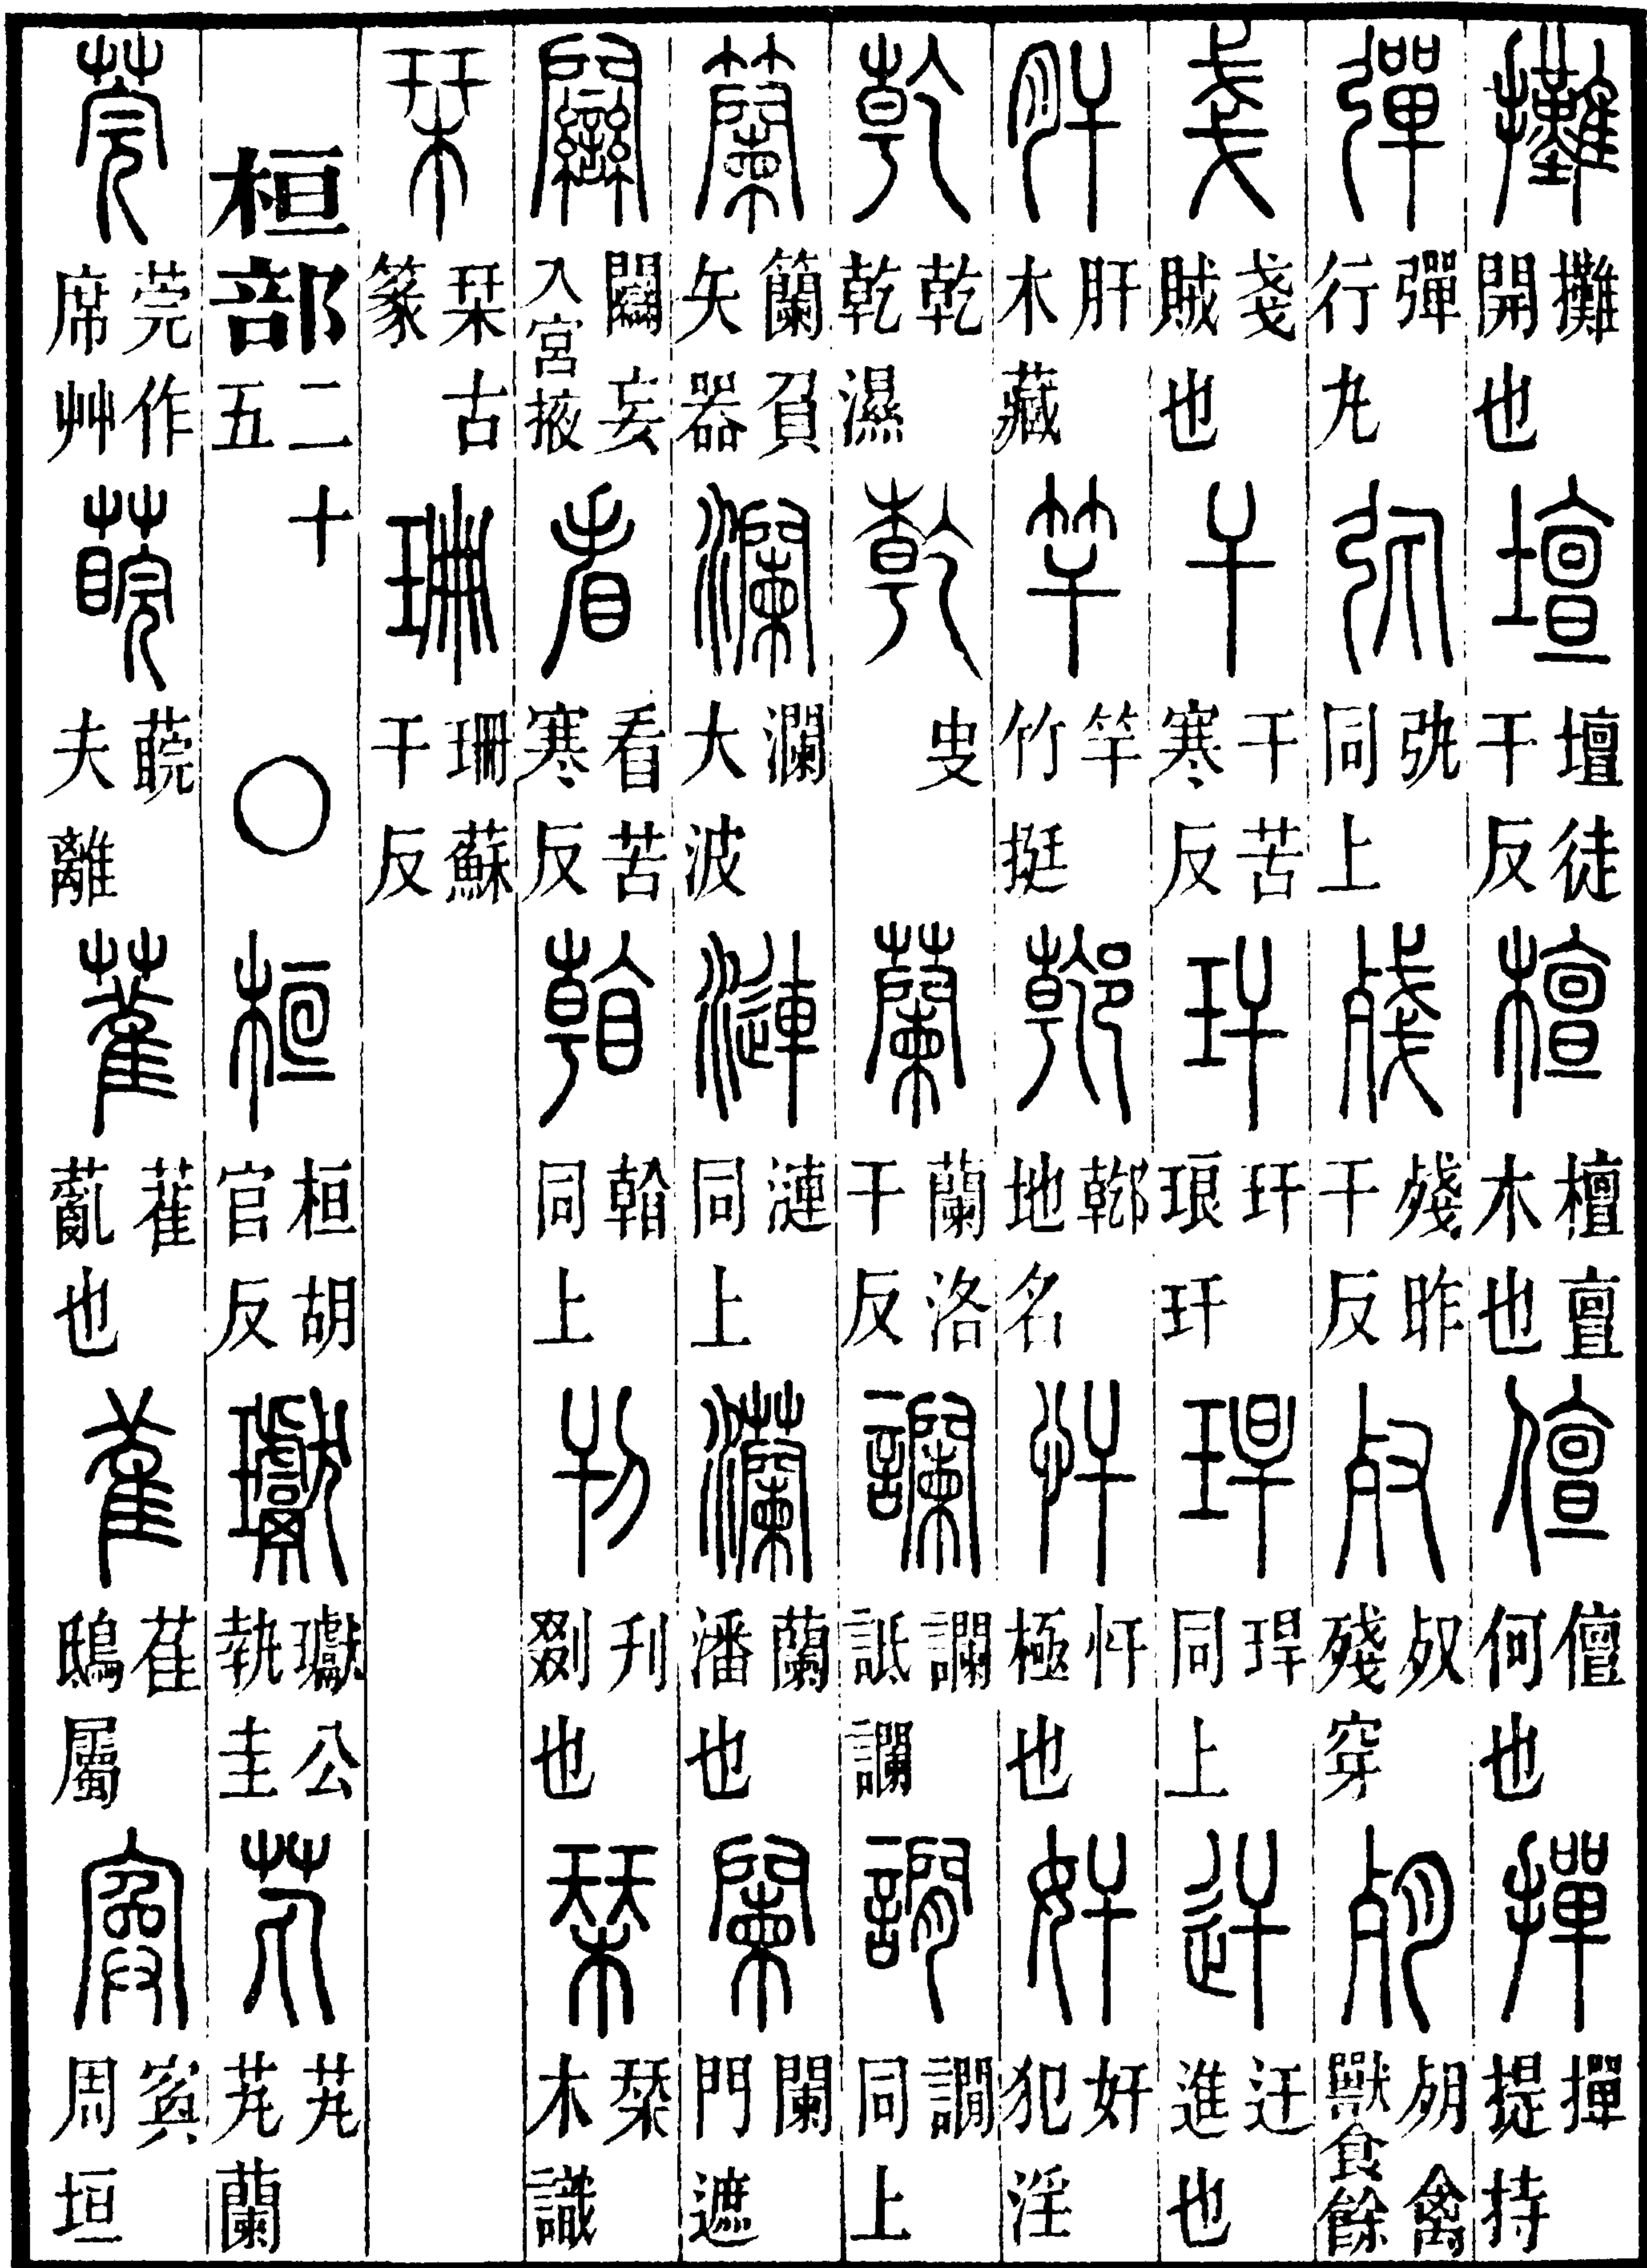 攤攤開也壇壇徒干反檀檀亶木也儃儃何也撣撣提持
彈彈行丸同上殘殘昨干反殘穿禽獸食餘
戔戔賊也干干苦寒反玕玕琅玕同上迀迀進也
肝肝木藏竿竿竹挺地名忓忓極也奸奸犯淫
乾乾乾濕乾叟蘭蘭洛干反讕讕詆讕譋譋同上
籣蘭負矢器瀾瀾大波漣漣同上灡蘭潘也闌闌門遮
妄入宮掖看看苦寒反同上刊刊剟也木識
栞栞古篆珊珊蘇干反
桓部二十五〇桓桓胡官反瓛瓛公執圭芄芄芄蘭
莞莞作席艸夫離萑薍也萑萑鴟屬周垣